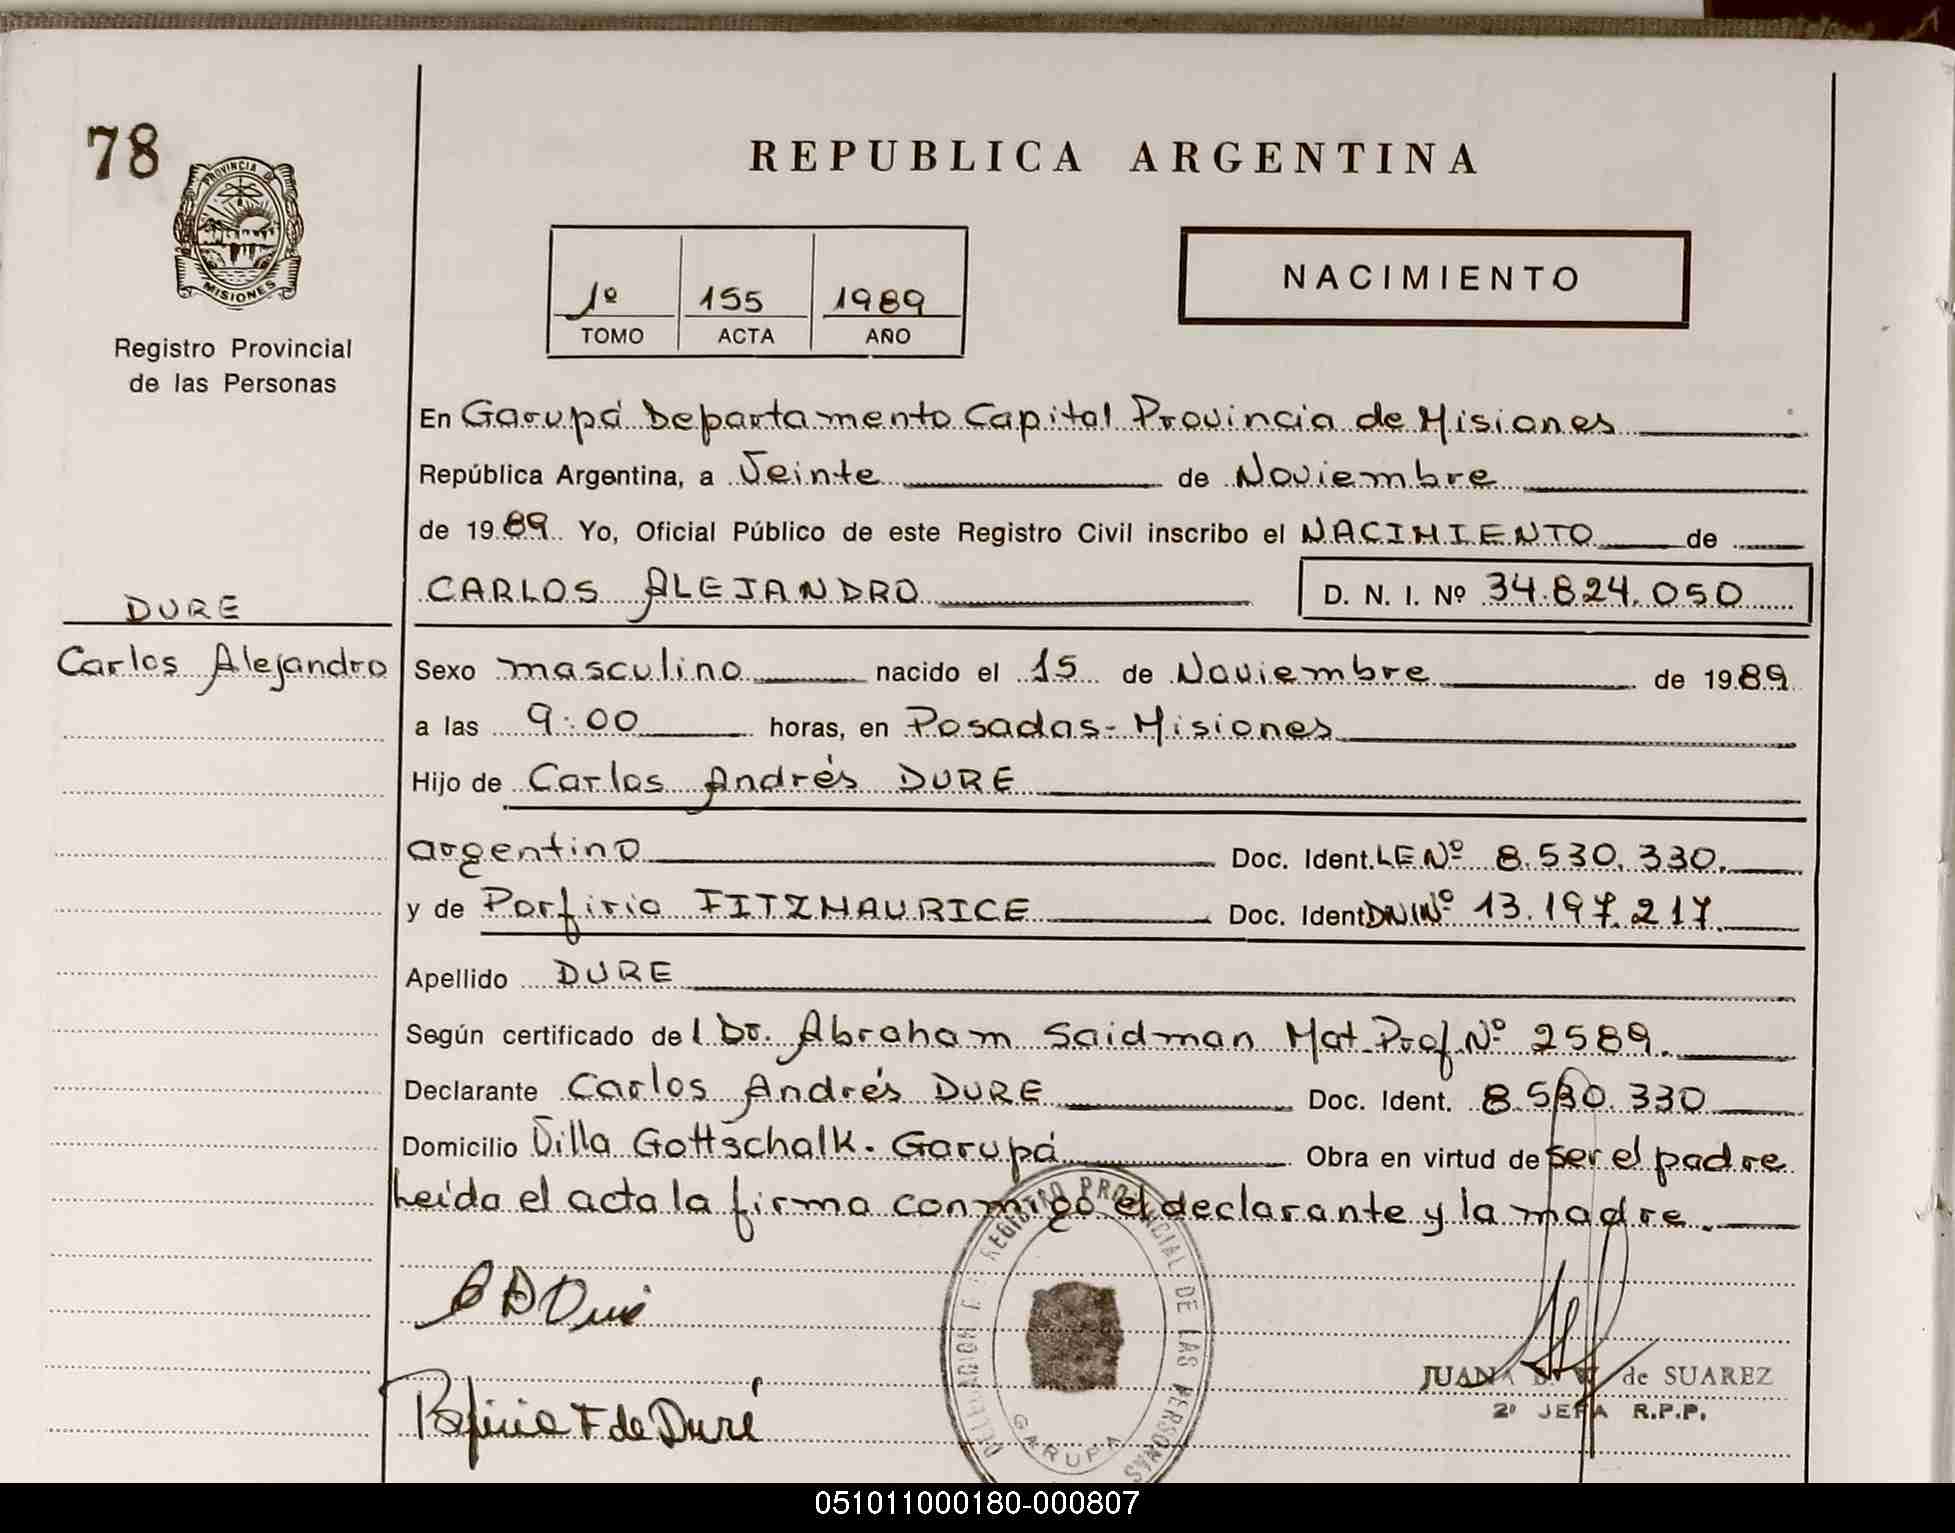 78
PROVINCIA DE
MISIONES
Registro Provincial
de las Personas
REPUBLICA ARGENTINA
1º 155 1989
TOMO ACTA AÑO
NACIMIENTO
En Garupá Departamento Capital Provincia de Misiones
República Argentina, a Veinte de Noviembre
de 1989 Yo, Oficial Público de este Registro Civil inscribo el NACIMIENTO de
CARLOS ALEJANDRO D. N. I. Nº 34.824.050
DURE
Carlos Alejandro
Sexo masculino nacido el 15 de Noviembre de 1989
a las 9:00 horas, en Posadas-Misiones
Hijo de Carlos Andrés DURE
argentino Doc. Ident. LE Nº 8.530.330.
y de Porfiria FITZMAURICE Doc. Ident DNI Nº 13.197.217.
Apellido DURE
Según certificado del Dr. Abraham Saidman Mat. Prof. Nº 2589.
Declarante Carlos Andrés DURE Doc. Ident. 8.530.330
Domicilio Villa Gottschalk. Garupá Obra en virtud de ser el padre
Leída el acta la firma conmigo el declarante y la madre.
REGISTRO PROVINCIAL DE LAS PERSONAS
DELEGACION
GARUPA
C A Duré
Porfiria F de Duré
JUANA de SUAREZ
2º JEFA R.P.P.
051011000180-000807